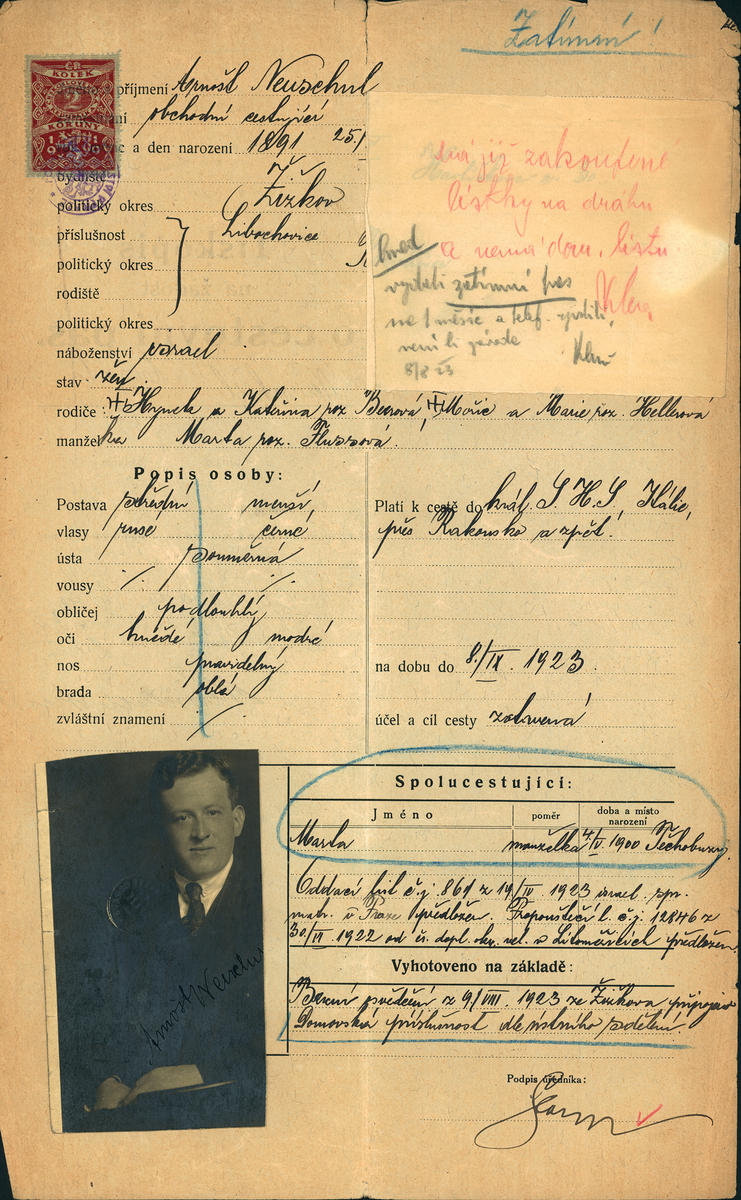 Zatímní!
ČR
KOLEK
2
KORUNY
1919
příjmení Arnošt Neuschul
obchodní cestující
a den narození 1891 25.
bydliště
politický okres Žižkov
příslušnost Libochovice
politický okres
rodiště
politický okres
náboženství israel
stav žen.
rodiče: Hynek a Kateřina roz. Beerová, Mořic a Marie roz. Hellerová
manželka Marta roz. Flussová.
má již zakoupené
lístky na dráhu
a nemá dom. listu
Klur
hned
vydati zatímní pas
na 1 měsíc a telef. zjistiti,
není li závada
8/8 23
Popis osoby:
Postava střední menší,
vlasy rusé černé
ústa souměrná
vousy ·/. ·/.
obličej podlouhlý
oči hnědé modré
nos pravidelný
brada oblá
zvláštní znamení ·/.
Platí k cestě do král. S.H.S, Itálie,
přes Rakousko a zpět.
na dobu do 8./IX. 1923.
účel a cíl cesty zotavená
Spolucestující:
Jméno poměr doba a místo narození
Marta manželka 4/V 1900 Těchobuzy
Oddací list č.j. 861 z 19/IV 1923 israel. spr.
matr. v Praze předložen. Propouštěcí l. č.j. 12846 z
30/VI. 1922 od čs. dopl. okr. vel. v Litoměřicích předložen.
Vyhotoveno na základě:
Berní osvědčení z 9/VIII. 1923 ze Žižkova připojeno
Domovská příslušnost dle ústního sdělení.
Arnošt Neuschul
Podpis úředníka: